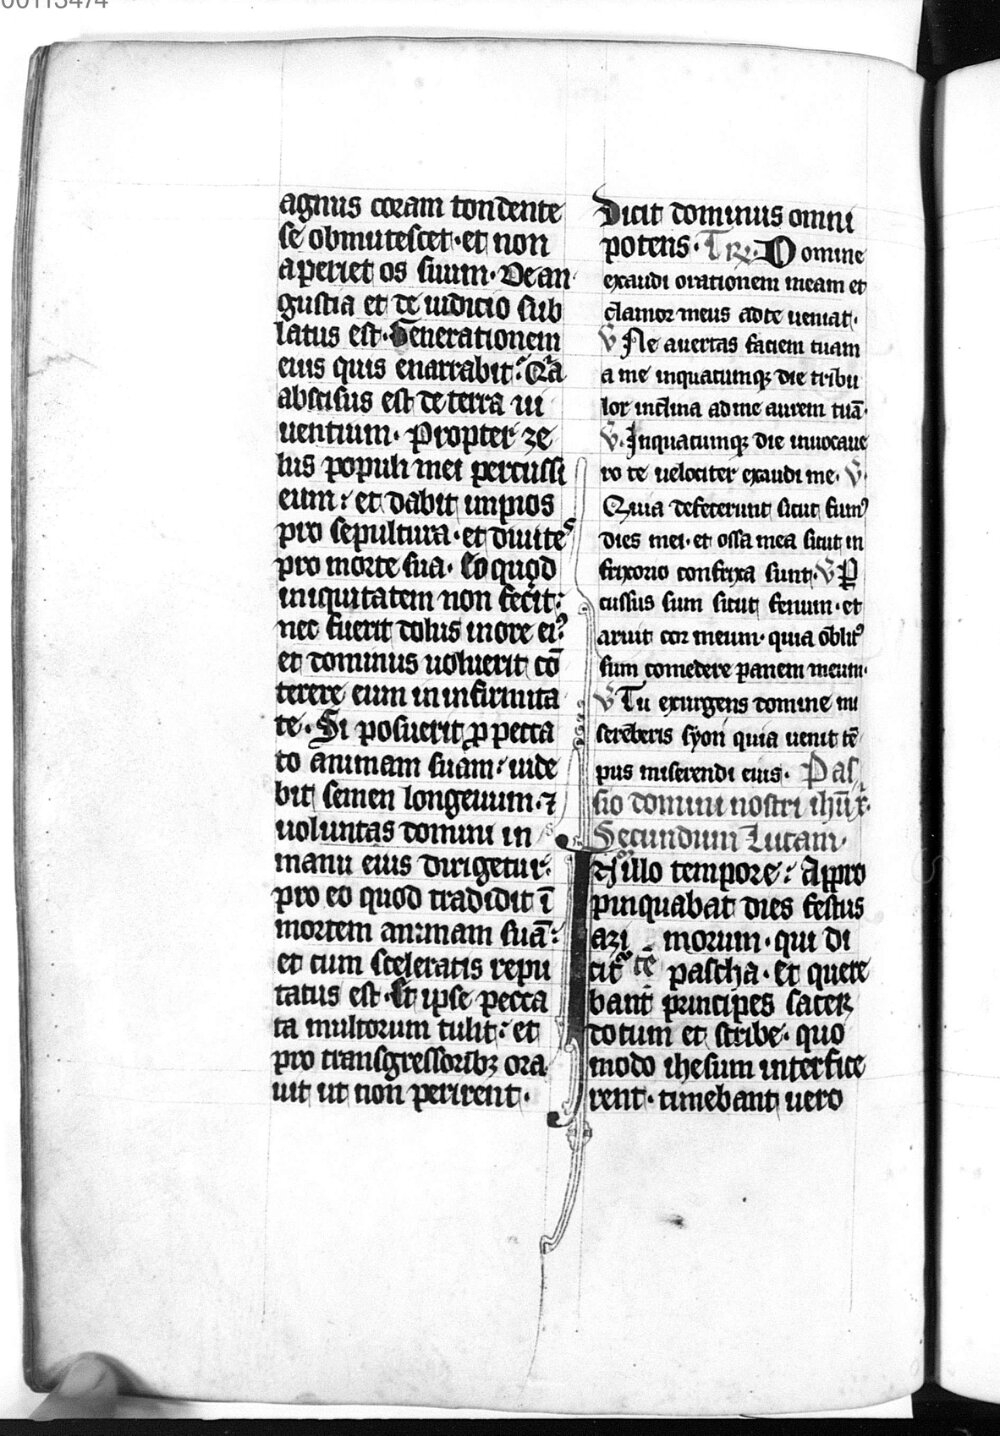 00113474
agnus coram tondente
se obmutescet · et non
aperiet os suum · De an
gustia et de iudicio sub
latus est · Generationem
eius quis enarrabit : Qͣa
abscisus est de terra ui
uentium · Propter ze
lus populi mei percussi
eum : et dabit impios
pro sepultura · et diuites
pro morte sua · Eo quod
iniquitatem non fecit :
nec fuerit dolus in ore eiꝰ
et dominus uoluerit cō
terere eum in infirmita
te · Si posuerit ꝓ pecca
to animam suam : uide
bit semen longeuum · ⁊
uoluntas domini in
manu eius dirigetur :
pro eo quod tradidit ī
mortem animam suā :
et cum sceleratis repu
tatus est · Et ipse pecca
ta multorum tulit : et
pro transgressoribꝫ ora
uit ut non perirent ·
Dicit dominus omni
potens · Trͣ · Domine
exaudi orationem meam et
clamor meus ad te ueniat ·
V Ne auertas faciem tuam
a me in quacumqꝫ die tribu
lor inclina ad me aurem tuā ·
V · In quacumqꝫ die inuocaue
ro te uelociter exaudi me · V ·
Quia defecerunt sicut fumꝰ
dies mei · et ossa mea sicut in
frixorio confrixa sunt · V Ꝑ
cussus sum sicut fenum · et
aruit cor meum · quia oblitꝰ
sum comedere panem meum ·
V Tu exurgens domine mi
sereberis syon quia uenit tē
pus miserendi eius · Pas
sio domini nostri ihū x̄ ·
Secundum Lucam ·
In illo tempore : Appro
pinquabat dies festus
azimorum · qui di
citͬ pascha · Et quere
bant principes sacerꝝ
dotum et scribe · quo
modo ihesum interfice
rent · timebant uero